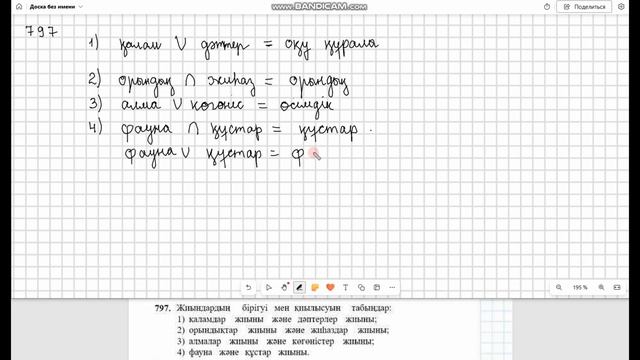 Доска без имени
WWW.BANDICAM.COM
Поделиться
797
1) қалам ∪ дәптер = оқу құралы
2) орындық ∩ жиһаз = орындық
3) алма ∪ көгөніс = өсімдік
4) фауна ∩ құстар = құстар.
фауна ∪ құстар = ф
195 %
797. Жиындардың бірігуі мен қиылысуын табыңдар:
1) қаламдар жиыны және дәптерлер жиыны;
2) орындықтар жиыны және жиһаздар жиыны;
3) алмалар жиыны және көгөністер жиыны;
4) фауна және құстар жиыны.